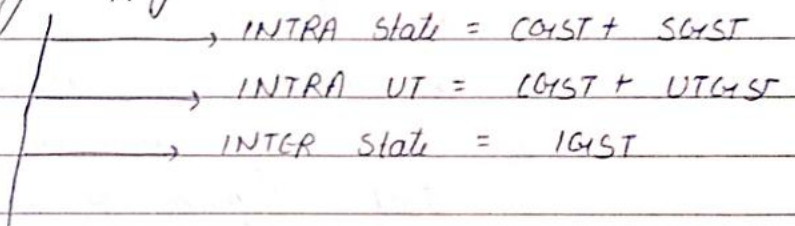 → INTRA State = CGST + SGST
→ INTRA UT = CGST + UTGST
→ INTER State = IGST